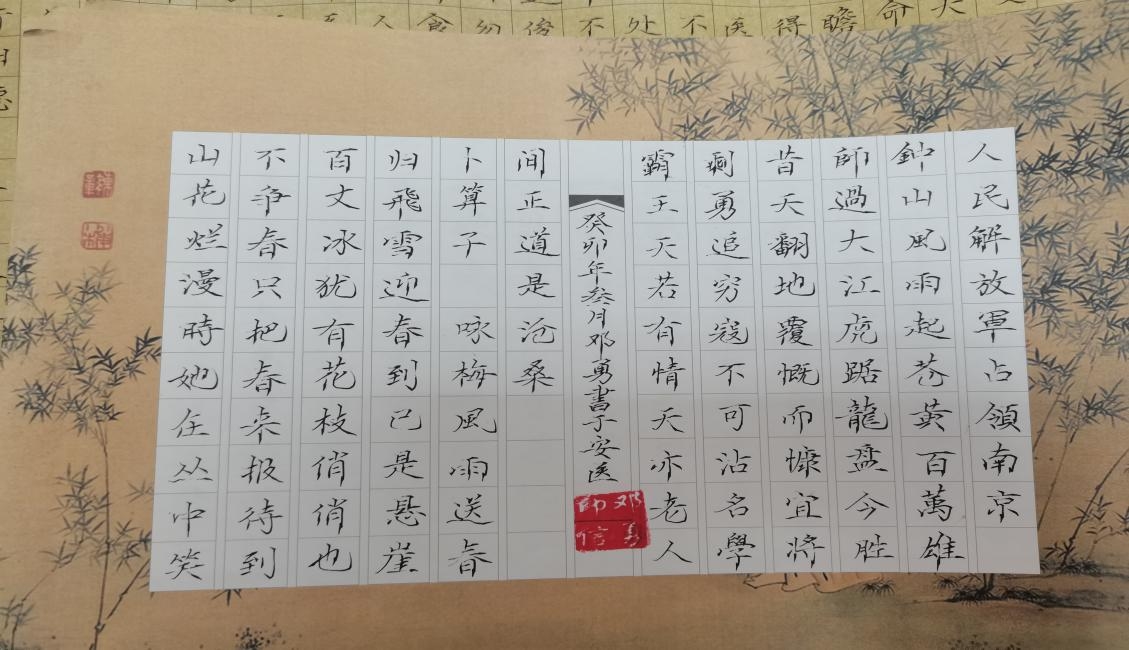 人民解放軍占領南京
鈡山風雨起苍黄百萬雄
師過大江虎踞龍盘今胜
昔天翻地覆慨而慷宜將
剩勇追穷寇不可沽名學
霸王天若有情天亦老人
癸卯年叁月邓勇書于安医
邓勇印信
间正道是沧桑
卜算子 咏梅風雨送春
归飛雪迎春到已是悬崖
百丈冰犹有花枝俏俏也
不爭春只把春来报待到
山花烂漫時她在丛中笑